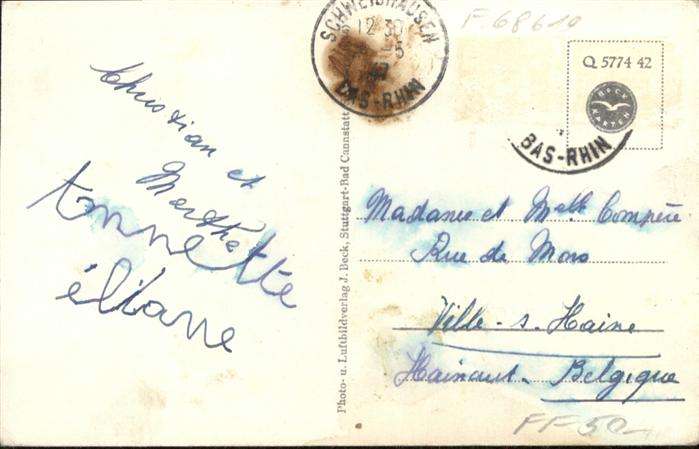 Christian et
Marthe
Annette
éliane
Photo- u. Luftbildverlag J. Beck, Stuttgart-Bad Cannstatt
SCHWEIGHAUSEN
12 30
-5
BAS-RHIN
F. 68610
Q 5774 42
BECK
KARTEN
BAS-RHIN
Madame et Melle Compère
Rue de Mons
Ville-s-Haine
Hainaut-Belgique
FF 50-